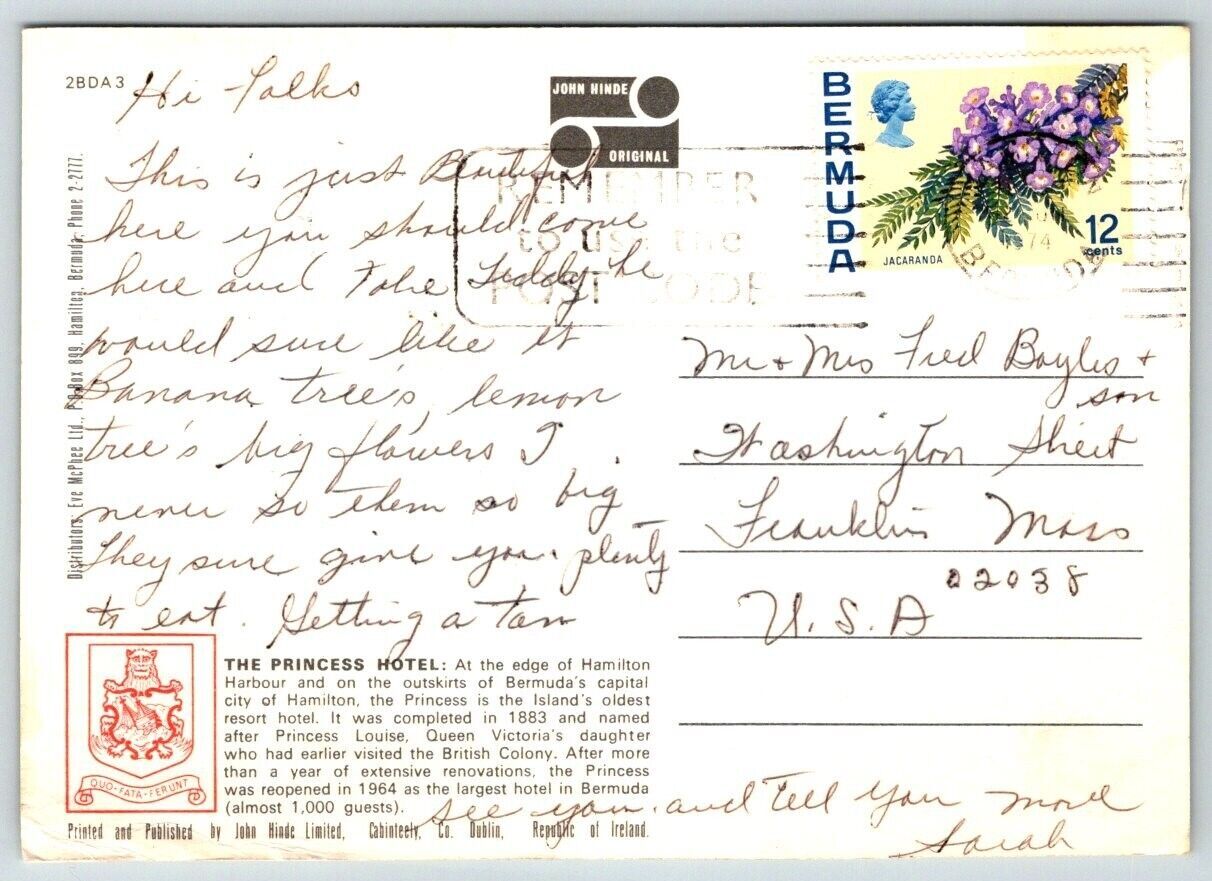 2BDA3
Hi Folks
This is just Beautiful
here you should come
here and Take Teddy he
would sure like it
Banana tree's, lemon
tree's big flowers I
never so them so big
They sure give you plenty
to eat. Getting a Tan
see you and Tell you more
Sarah
JOHN HINDE
ORIGINAL
REMEMBER
to use the
POST CODE
BERMUDA
JACARANDA
12
cents
74
Mr & Mrs Fred Bayles &
son
Washington Street
Franklin Mass
02038
U.S.A
Distributors: Eve McPhee Ltd., P.O.Box 899, Hamilton, Bermuda. Phone 2-2777.
QUO·FATA·FERUNT
THE PRINCESS HOTEL: At the edge of Hamilton
Harbour and on the outskirts of Bermuda's capital
city of Hamilton, the Princess is the Island's oldest
resort hotel. It was completed in 1883 and named
after Princess Louise, Queen Victoria's daughter
who had earlier visited the British Colony. After more
than a year of extensive renovations, the Princess
was reopened in 1964 as the largest hotel in Bermuda
(almost 1,000 guests).
Printed and Published by John Hinde Limited, Cabinteely, Co. Dublin, Republic of Ireland.